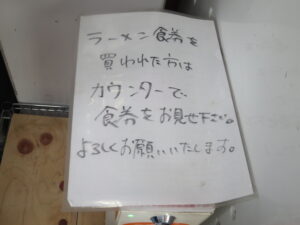 ラーメン食券を
買われた方は
カウンターで
食券をお見せ下さい。
よろしくお願いいたします。